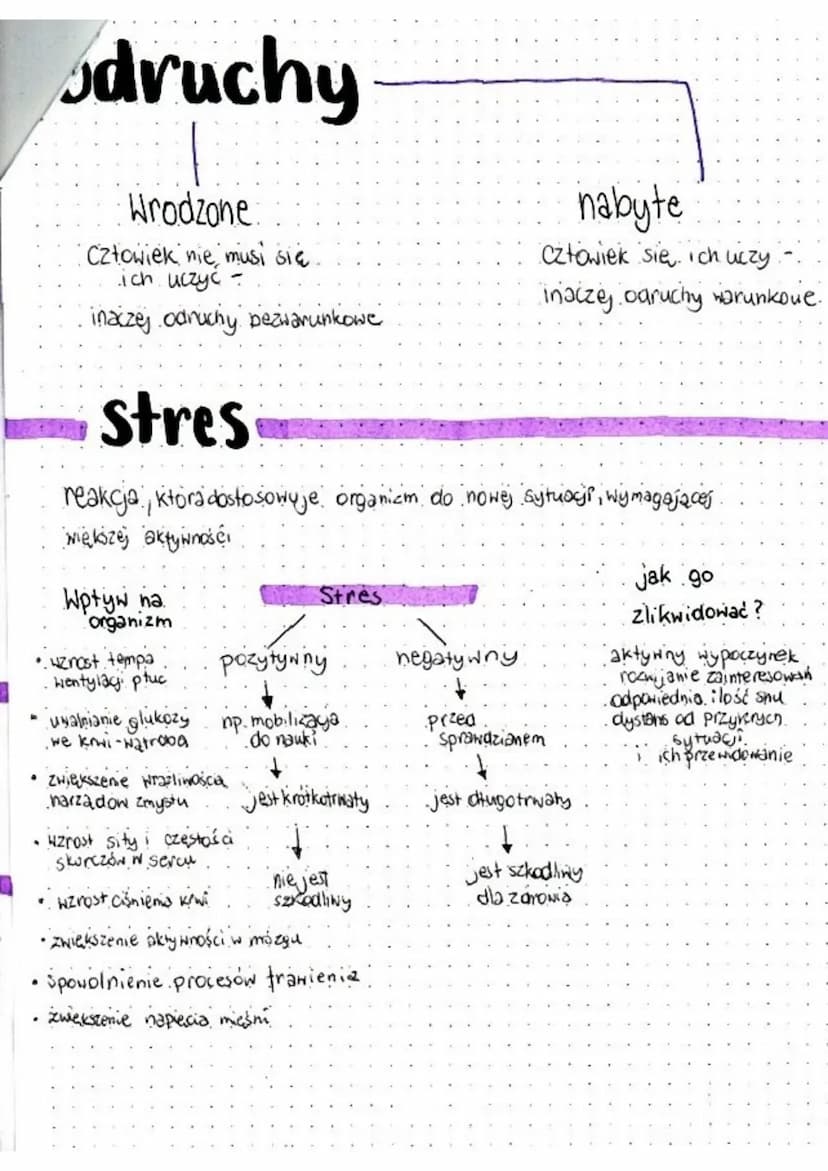 odruchy
wrodzone
człowiek nie musi się
ich uczyć -
inaczej odruchy bezwarunkowe
nabyte
człowiek się ich uczy -
inaczej odruchy warunkowe.
stres
reakcja, która dostosowuje organizm do nowej sytuacji, wymagającej
większej aktywności
Wpływ na
organizm
• wzrost tempa
wentylacji płuc
• uwalnianie glukozy
we krwi - wątroba
• zwiększenie wrażliwości
narządów zmysłu
• wzrost siły i częstości
skurczów w sercu
• wzrost ciśnienia krwi
• zwiększenie aktywności w mózgu
• spowolnienie procesów trawienia
• zwiększenie napięcia mięśni
Stres
pozytywny
np. mobilizacja
do nauki
jest krótkotrwały
nie jest
szkodliwy
negatywny
przed
sprawdzianem
jest długotrwały
jest szkodliwy
dla zdrowia
jak go
zlikwidować?
aktywny wypoczynek
rozwijanie zainteresowań
odpowiednia ilość snu
dystans od przykrych
sytuacji
i ich przewidowanie